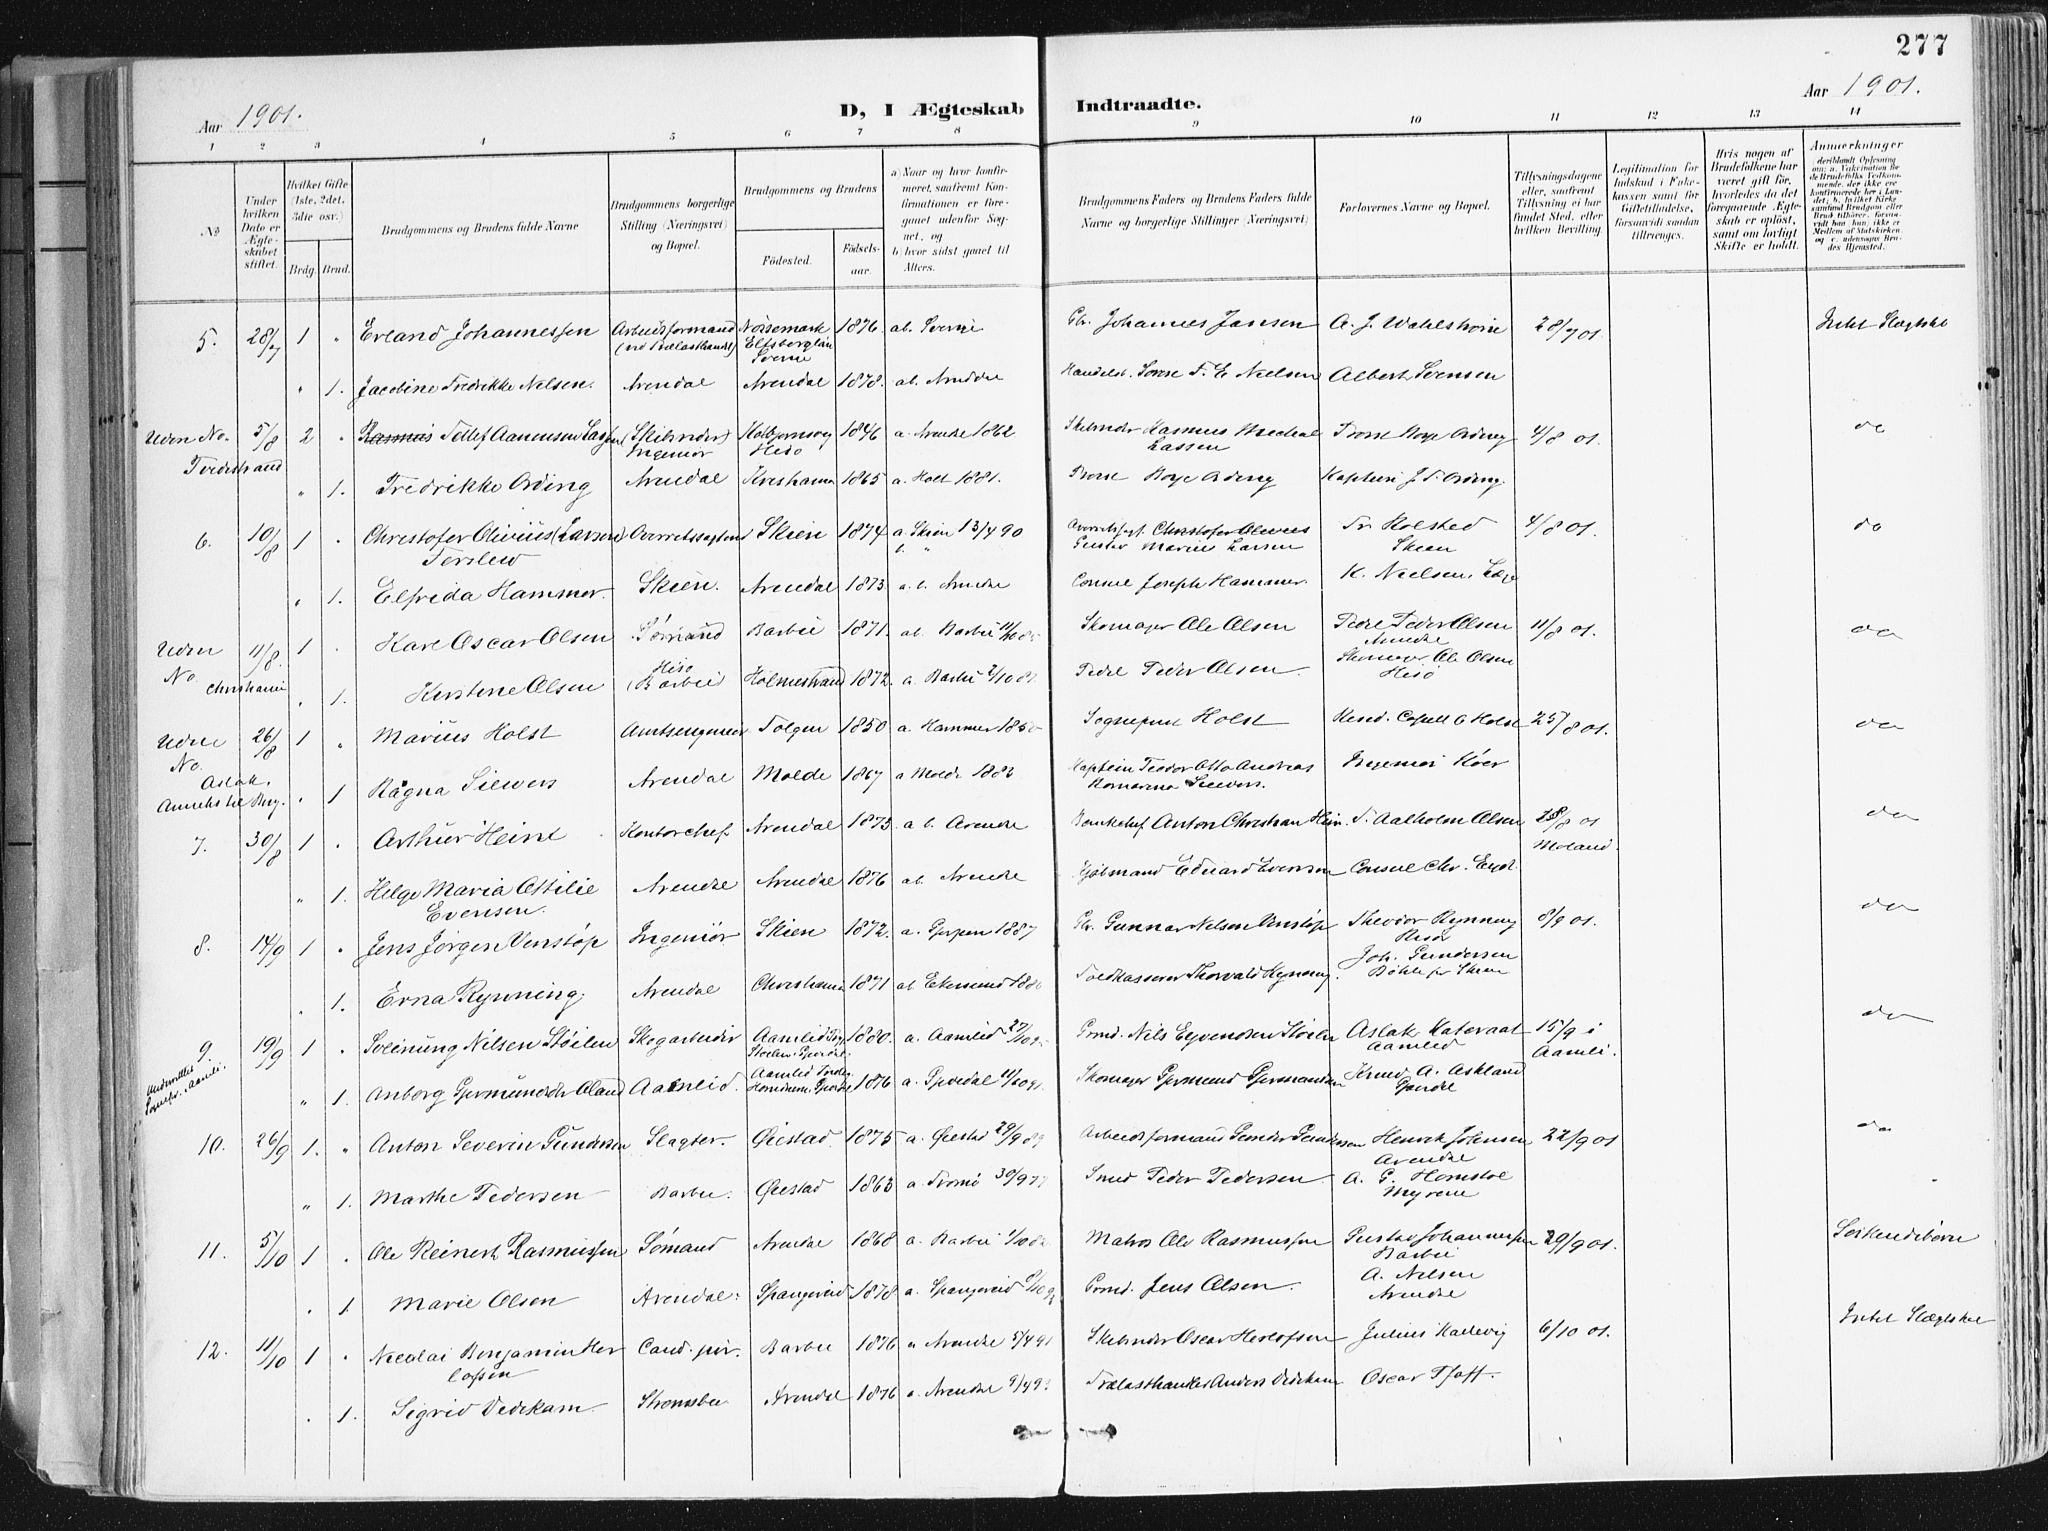 277
Aar 1901.
D, I Ægteskab Indtraadte.
Aar 1901.
1 2 3 4 5 6 7 8 9 10 11 12 13 14
No
Under hvilken Dato er Ægteskabet stiftet.
Hvilket Gifte (1ste, 2det, 3die osv.)
Brdg. Brud.
Brudgommens og Brudens fulde Navne
Brudgommens borgerlige Stilling (Næringsvei) og Bopæl.
Brudgommens og Brudens
Fødested.
Fødselsaar.
a) Naar og hvor konfirmeret, saafremt Konfirmationen er foregaaet udenfor Sognet, og
b) hvor sidst gaaet til Alters.
Brudgommens Faders og Brudens Faders fulde Navne og borgerlige Stillinger (Næringsvei)
Forlovernes Navne og Bopæl.
Tillysningsdagene eller, saafremt Tillysning ei har fundet Sted, efter hvilken Bevilling.
Legitimation for Indskud i Fakekassen samt for Giftetilladelse, forsaavidt saadan tiltrænges.
Hvis nogen af Brudefolkene har været gift før, hvorledes da det foregaaende Ægteskab er opløst, samt om lovligt Skifte er holdt.
Anmerkninger
5. 28/7 1 " Erland Johannessen Arbeidsformand Nössemark 1876 ab. Sverige Gbr. Johannes Jansen A. J. Wahlstrøm 28/7 01. Intet Slægtskab
(ved Trælasthandl) Elfsborglän Sverie
" 1. Jacobine Fredrikke Nielsen. Arendal Arendal 1878. ab. Arendal Handelsb. Sørse F. E. Nielsen Albert Svensen
Uden No. 5/8 2 " Rasmus Tellef Aanensen Lassen (Skibreder) Kolbjørnsvig 1846 a. Arendal 1862 Skibreder Rasmus Mechal Provst Boye Ording 4/8 01. do
Tvedestrand Ingeniør Hisø Lassen
" 1. Fredrikke Ording Arendal Kristiania 1865 a. Holt 1881. Provst Boye Ording Kaptein J. F. Ording.
6. 10/8 1 " Christofer Olivius (Larsen) Overretssagfører Skien 1874 a. Skien 13/4 90 Overretssagf. Christofer Olivius Fr. Rolsted 4/8 01. do
Terslew b. " Gustav Marius Larsen Skien
" 1. Elfrida Hammer. Skien. Arendal 1873 a. b. Arendal Consul Joseph Hammer. K. Nielsen. Læge
Uden 11/8. 1 . Karl Oscar Olsen Sømand Barbu 1871. ab. Barbu 11/10 85 Skomager Ole Olsen Pedre Peder Olsen 11/8 01. do
No. Hisø Arendal
Christiania " 1. Kirstine Olsen (Barbu) Holmestrand 1872. a. Barbu 2/10 87. Pedre Peder Olsen. Skomager Ole Olsen Hisø
Uden 26/8 1 " Marius Holst Amtsingeniør Tolgen 1850 a. Hammer 1850 Sogneprest Holst Resid. Capell O Holst 25/8 01. do
No.
Aslak,
Anneks til Berg. " 1 Ragna Siewers Arendal Molde 1867 a Molde 1883 Kaptein Teodor Otto Andreas Ingeniør Koer
Siewers.
7. 30/8 1 . Arthur Heine Kontorchef Arendal 1873 a b. Arendal Bankchef Anton Christian Hein. T. Aalholm Olsen 25/8 01 do
Moland.
" 1. Helga Maria Ottilie Arendal Arendal 1876 ab. Arendal Kjøbmand Eduard Evensen Consul Chr. Eyde.
Evensen.
8. 14/9 1 " Jens Jørgen Venstøp Ingeniør Skien 1872. a. Gjerpen 1887 Gbr. Gunnar Nilsen Venstøp Theodor Rynning 8/9 01. do
Risør
" 1. Erna Rynning. Arendal Christiania 1871 ab Ekersund 1886 Toldkasserer Thorvald Rynning. Joh. Gundersen
Bøhle pr Skien
9. 19/9 1 " Sveinung Nilsen Støilen Skogarbeider Aamlid 1880. a. Aamlid 27/10 95 Grmd. Nils Eyvendsen Støilen Aslak Kateraas 15/9 i do
Aamlid Aamli.
Sognepr. Aamli. " 1. Anborg Germundsdtr Øland Aamlid. 1876 a. Gjøvdal 11/10 91. Skomager Germund Germundsen Knud A. Askland
Gjøvdal
10. 26/9 1. " Anton Severin Gundersen Slagter. Øiestad 1875 a. Øiestad 29/9 89 Arbeidsformand Gunder Gundersen Henrik Johnsen 22/9 01. do
Arendal
" 1. Marthe Pedersen Barbu. Øiestad 1863 a. Tromø 30/9 77 Smed Peder Pedersen A. G. Homstøl
Myrene
11. 5/10 1 " Ole Reinert Rasmussen Sømand Arendal 1868 a. Barbu 1/10 82 Matros Ole Rasmussen Gustav Johannessen 29/9 01. Søskendebørn
Barbu
" 1 Marie Olsen Arendal. Spangereid 1878 a. Spangereid Grmd. Jens Olsen. A. Nilsen
Arendal
12. 11/10 1 " Nicolai Benjamin Her Cand. jur. Barbu 1876 a Arendal 5/4 91 Skibreder Oscar Herlofsen Julius Kallevig 6/10 01. Intet Slægtskab
lofsen
. 1. Sigrid Dedekam. Strømsbu Arendal 1876 a. Arendal 9/4 93 Trælasthandler Anders Dedekam Oscar Pfaff.